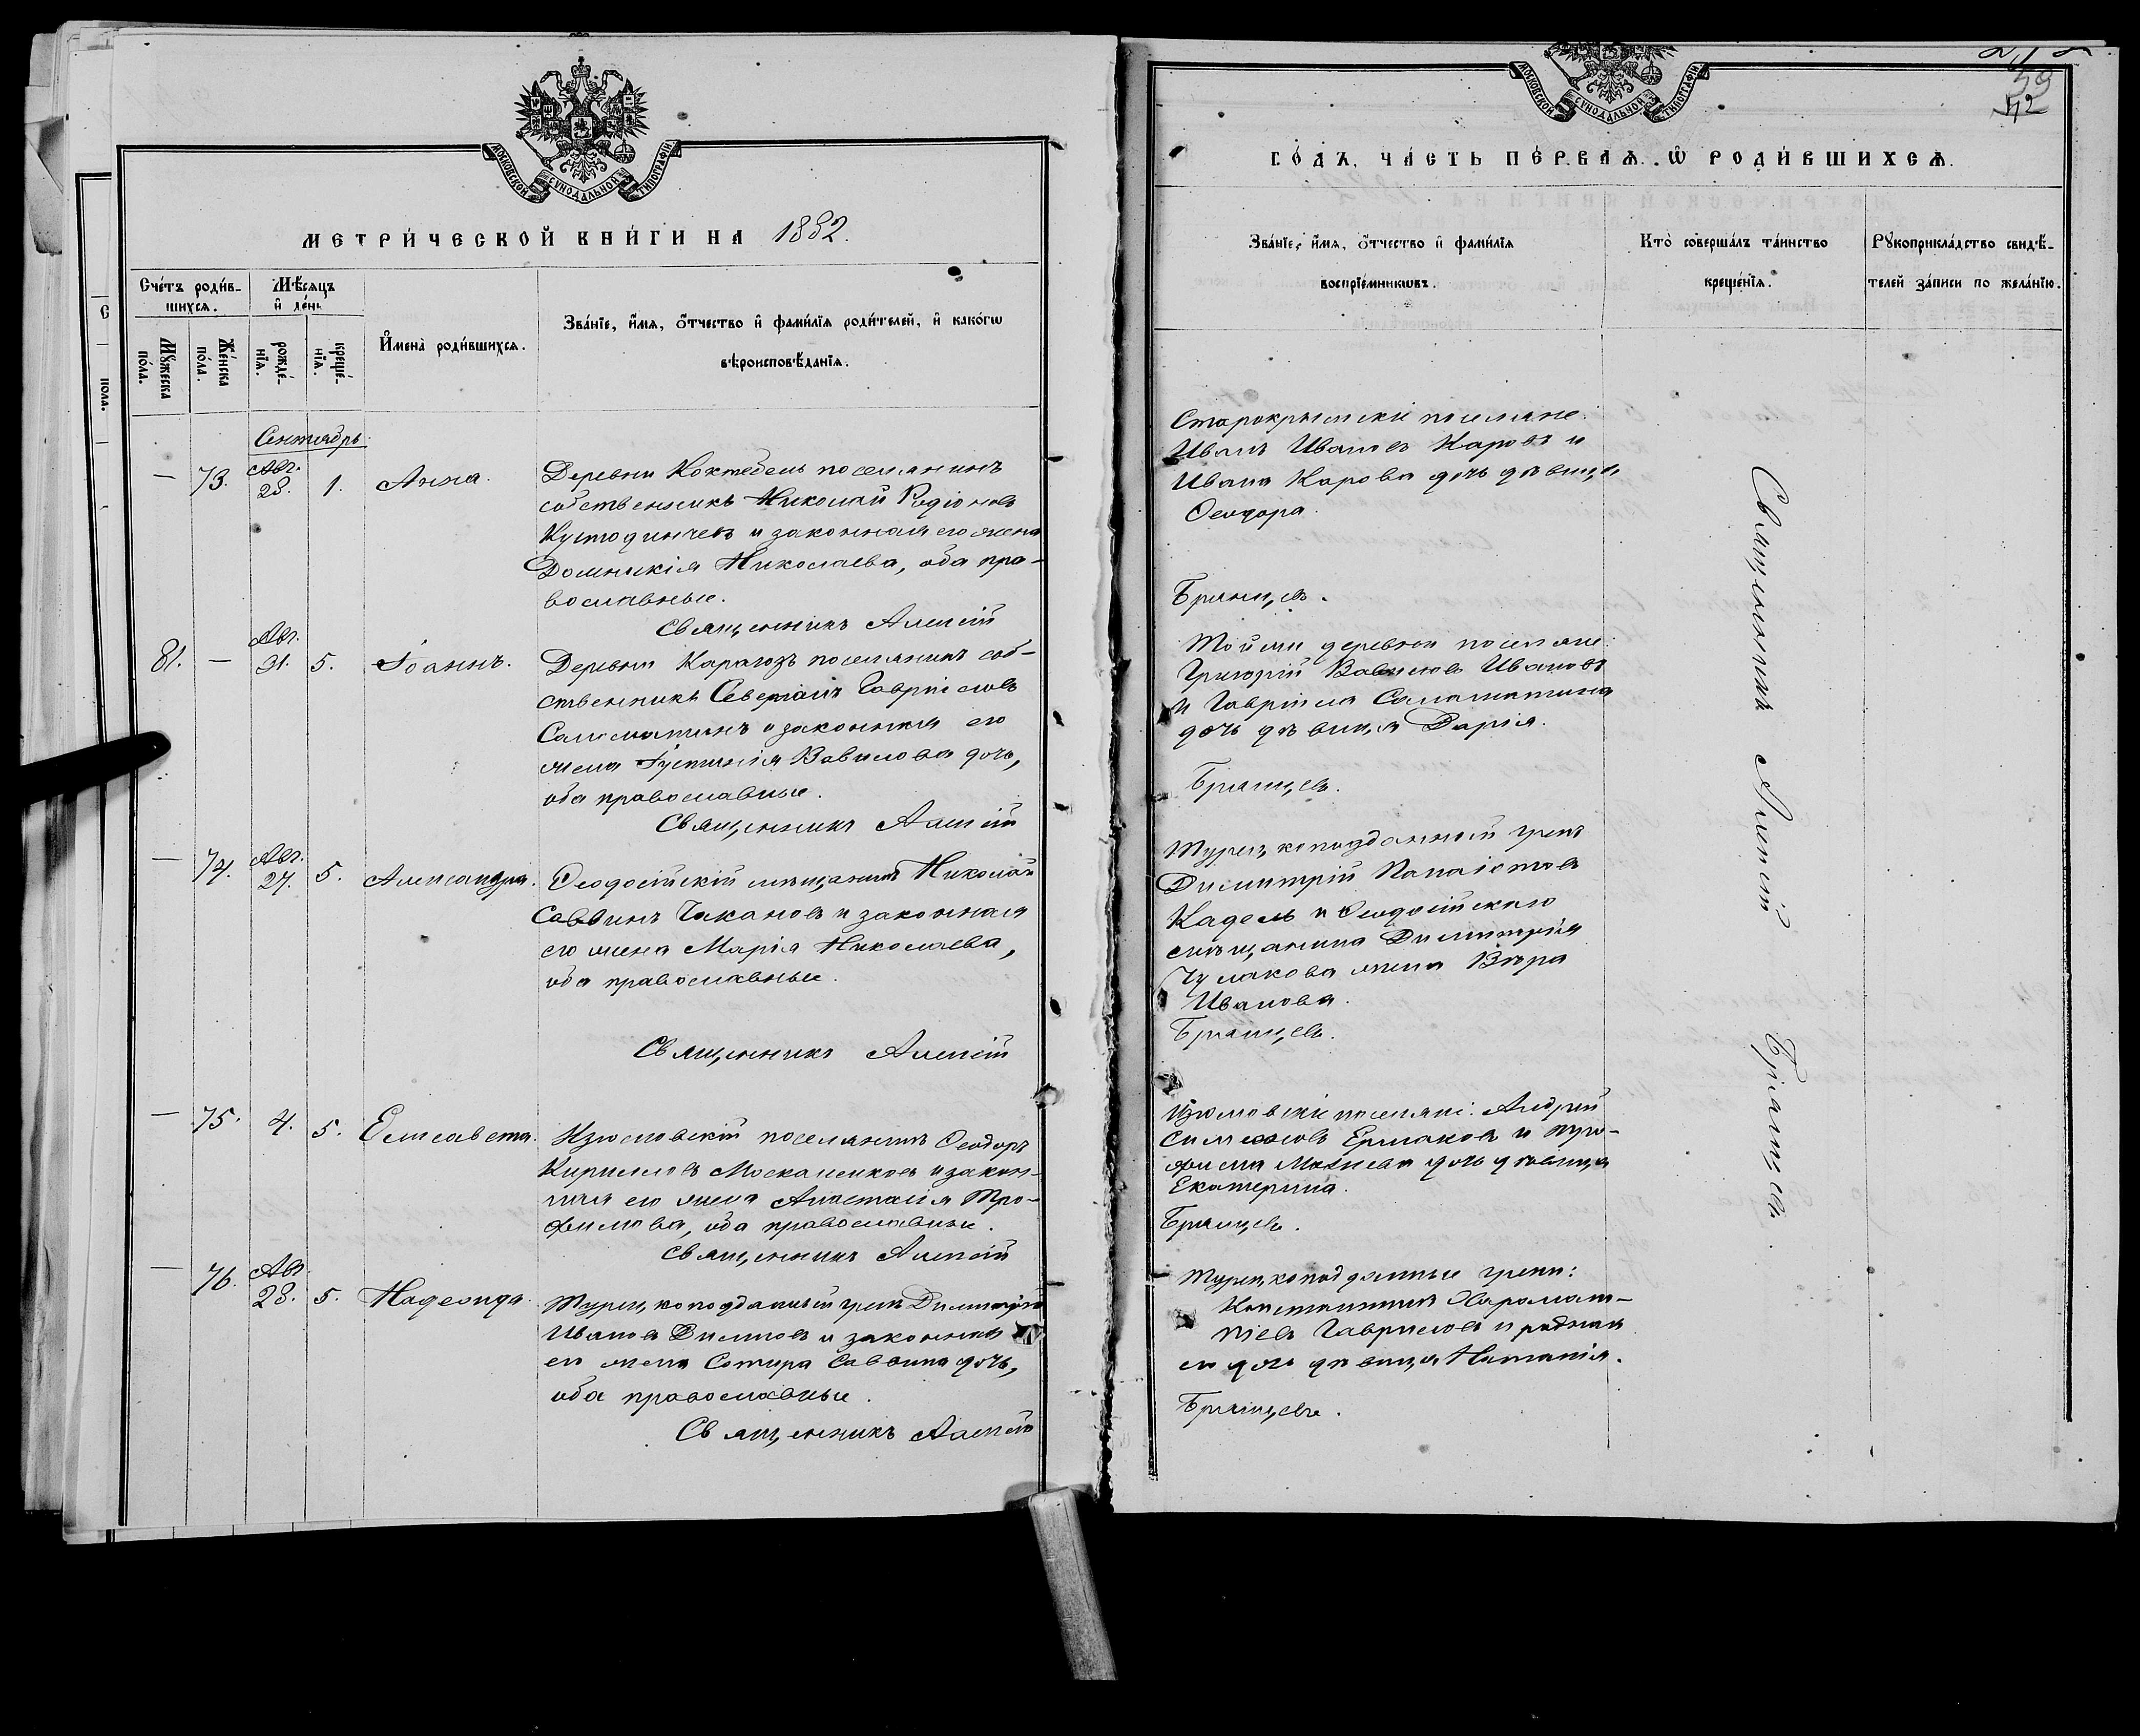 МОСКОВСКОЙ СѴНОДАЛЬНОЙ ТИПОГРАФІИ
МЕТРИ́ЧЕСКОЙ КНИ́ГИ НА 1882.
Сче́тъ роди́в-
шихся.
Мѣ́сяцъ
и҆ де́нь
Мꙋ́жеска
по́ла.
Же́нска
по́ла.
рожде́-
нїѧ.
креще́-
нїѧ.
И҆мена̀ роди́вшихсѧ.
Зва́нїе, и҆́мѧ, ѻ҆́тчество и҆ фами́лїѧ роди́телей, и҆ како́гѡ
вѣроисповѣ́данїѧ.
Сентябрь.
— 73. Авг. 28. 1. Анна.
Деревни Коктебель поселянинъ
собственникъ Николай Родіоновъ
Кустодинчевъ и законная его жена
Домникія Николаева, оба пра-
вославные.
Священникъ Алексій
81. — Авг. 31. 5. Іоаннъ.
Деревни Карагозъ поселянинъ соб-
ственникъ Севетіанъ Гавріиловъ
Саломатинъ и законная его
жена Іустинія Вавилова дочь,
оба православные.
Священникъ Алексій
— 74. Авг. 27. 5. Александра.
Ѳеодосійскій мѣщанинъ Николай
Саввинъ Чакановъ и законная
его жена Марія Николаева,
оба православные.
Священникъ Алексій
— 75. 4. 5. Елисавета.
Изюмовскій поселянинъ Ѳеодоръ
Кирилловъ Москаленковъ и закон-
ная его жена Анастасія Тро-
фимова, оба православные.
Священникъ Алексій
— 76. Авг. 28. 5. Надежда.
Турецкоподданный грекъ Димитрій
Ивановъ Димовъ и законная
его жена Сотира Саввина дочь,
оба православные.
Священникъ Алексій
МОСКОВСКОЙ СѴНОДАЛЬНОЙ ТИПОГРАФІИ
39
42
ГО́ДЪ, ЧА́СТЬ ПЕ́РВАѦ. Ѡ҆ РОДИ́ВШИХСѦ.
Зва́нїе, и҆́мѧ, ѻ҆́тчество и҆ фами́лїѧ
воспрїе́мникѡвъ.
Кто̀ соверша́лъ та́инство
креще́нїѧ.
Рꙋкоприкла́дство свидѣ́-
телей за́писи по жела́нїю.
Старокрымскіе поселяне:
Иванъ Ивановъ Каровъ и
Ивана Карова дочь дѣвица
Ѳеодора.
Брянцевъ.
Той же деревни поселяне:
Григорій Вавиловъ Ивановъ
и Гавріила Саламатина
дочь дѣвица Дарія.
Брянцевъ.
Турецкоподданный грекъ
Димитрій Панаіотовъ
Кадель и Ѳеодосійскаго
мѣщанина Димитрія
Чумакова жена Вѣра
Иванова.
Брянцевъ.
Изюмовскіе поселяне: Андрей
Симеоновъ Ермаковъ и Тро-
фима дочь дѣвица
Екатерина.
Брянцевъ.
Турецкоподданные греки:
Константинъ Харалам-
піевъ Гавриловъ и родная
его дочь дѣвица Наталія.
Брянцевъ.
Священникъ Алексій Брянцевъ.